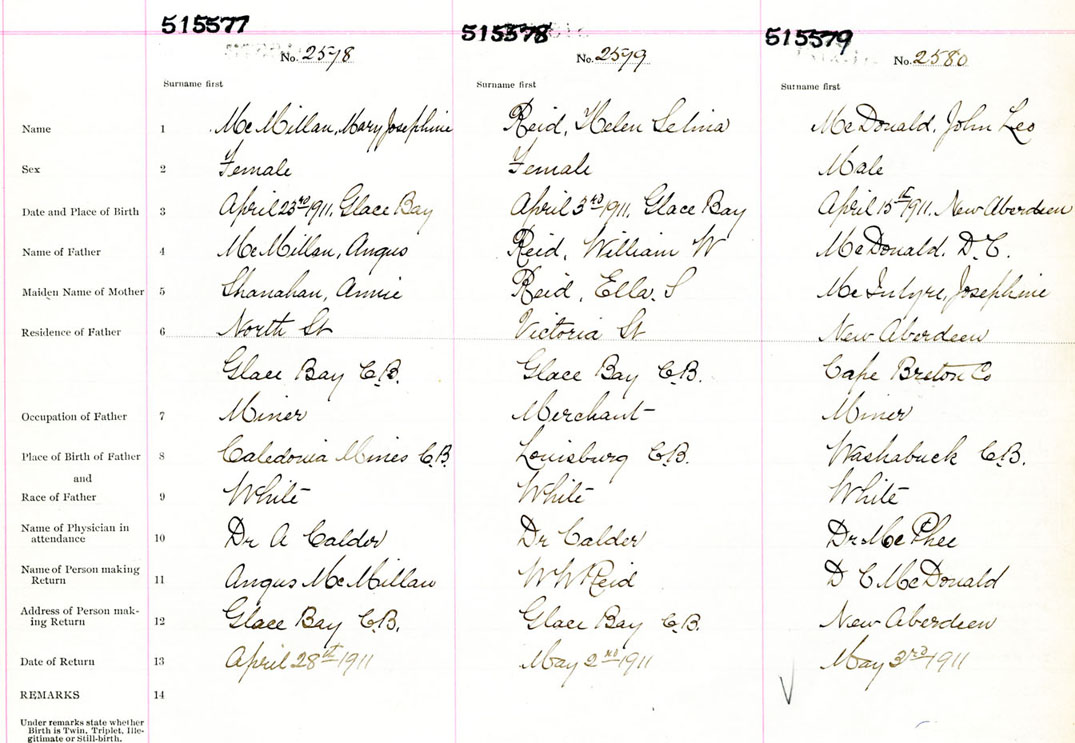 515577 515578 515579
No. 2578 No. 2579 No. 2580
Surname first Surname first Surname first
Name 1 McMillan, Mary Josephine Reid, Helen Selina McDonald, John Leo
Sex 2 Female Female Male
Date and Place of Birth 3 April 23rd 1911, Glace Bay April 3rd 1911, Glace Bay April 15th 1911, New Aberdeen
Name of Father 4 McMillan, Angus Reid, William W McDonald, D.C.
Maiden Name of Mother 5 Shanahan, Annie Reid, Ella. S McIntyre, Josephine
Residence of Father 6 North St Victoria St New Aberdeen
Glace Bay C.B. Glace Bay C.B. Cape Breton Co
Occupation of Father 7 Miner Merchant Miner
Place of Birth of Father 8 Caledonia Mines C.B. Louisburg C.B. Washabuck C.B.
and
Race of Father 9 White White White
Name of Physician in
attendance 10 Dr A Calder Dr Calder Dr McPhee
Name of Person making
Return 11 Angus McMillan W W Reid D C McDonald
Address of Person mak-
ing Return 12 Glace Bay C.B. Glace Bay C.B. New Aberdeen
Date of Return 13 April 28th 1911 May 2nd 1911 May 3rd 1911
REMARKS 14
Under remarks state whether
Birth is Twin, Triplet, Ille-
gitimate or Still-birth.